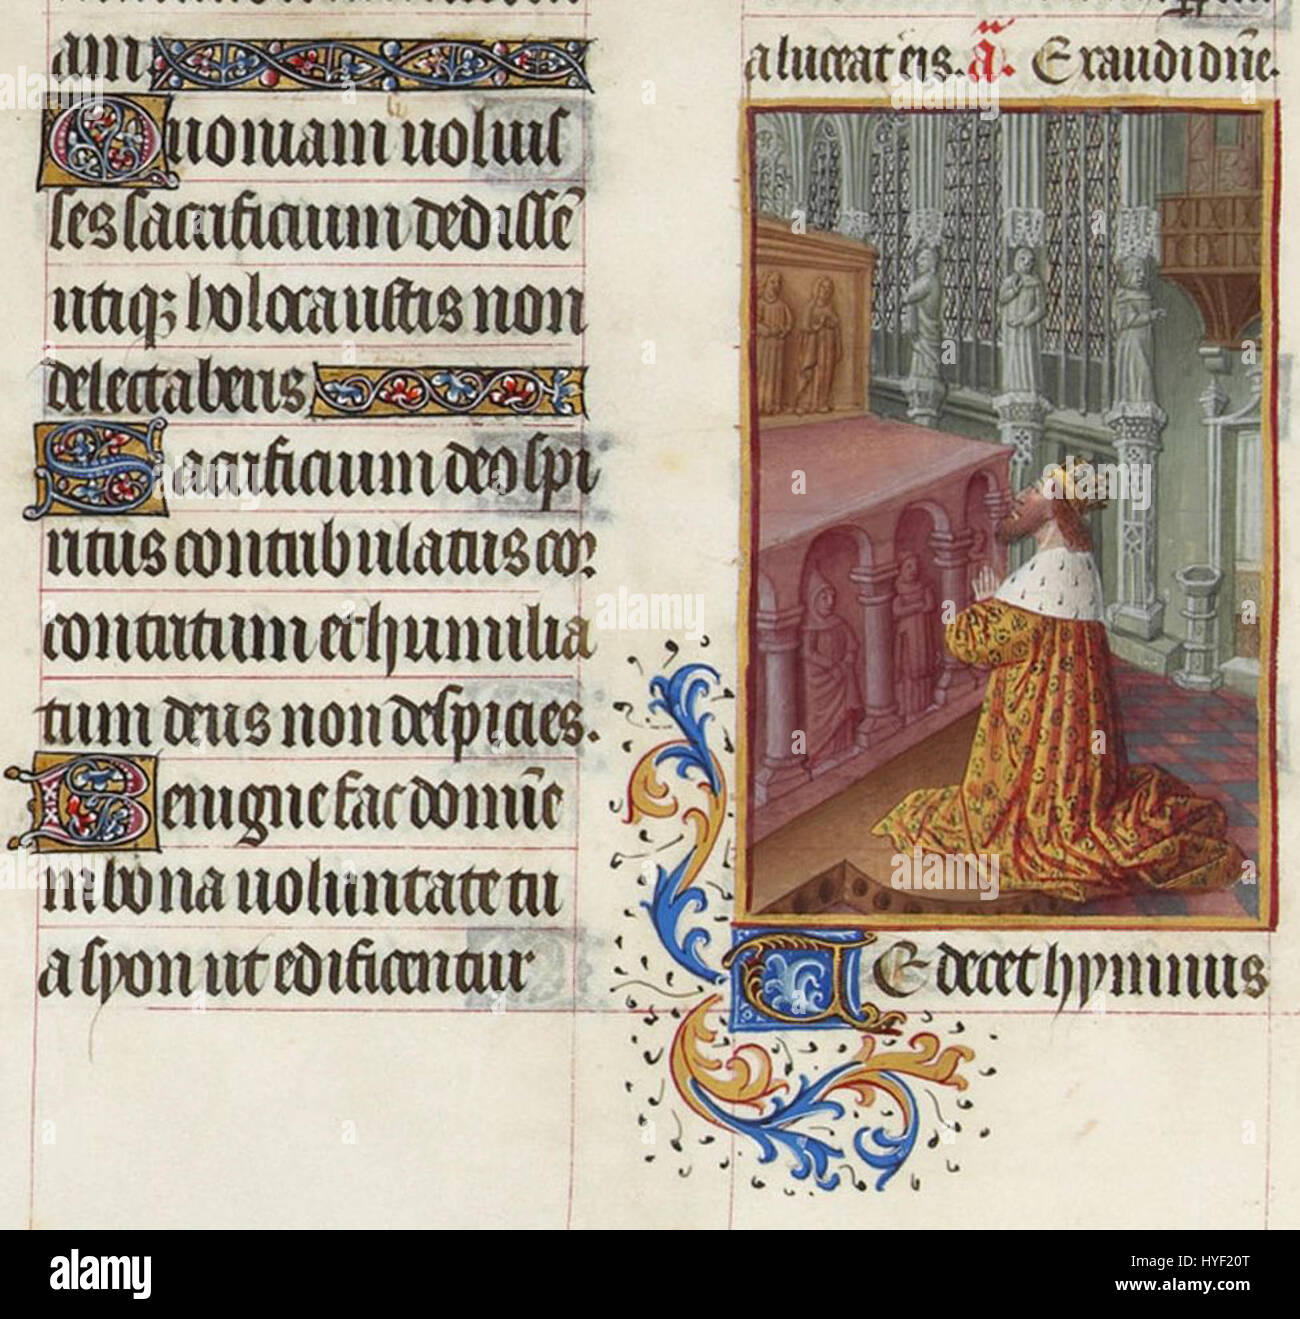 am.
Quoniam uoluis
ses sacrificium dedissē
utiqꝫ holocaustis non
delectaberis
Sacrificium deo spi
ritus contribulatus cor
contritum et humilia
tum deus non despicies.
Benigne fac domīe
in bona uoluntate tu
a syon ut edificentur
a luceat eis. ā. Exaudi dñe.
TE decet hymnus
alamy
HYF20T
www.alamy.com